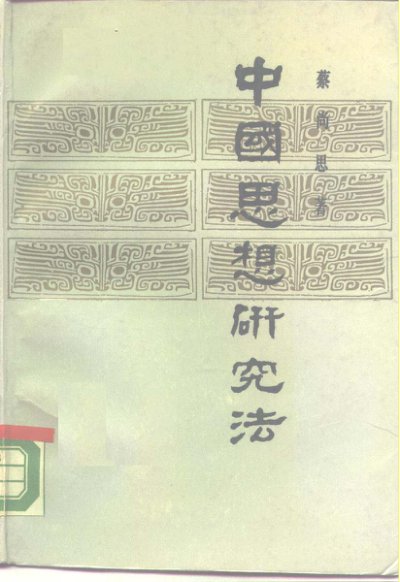 蔡尚思著
中國思想研究法